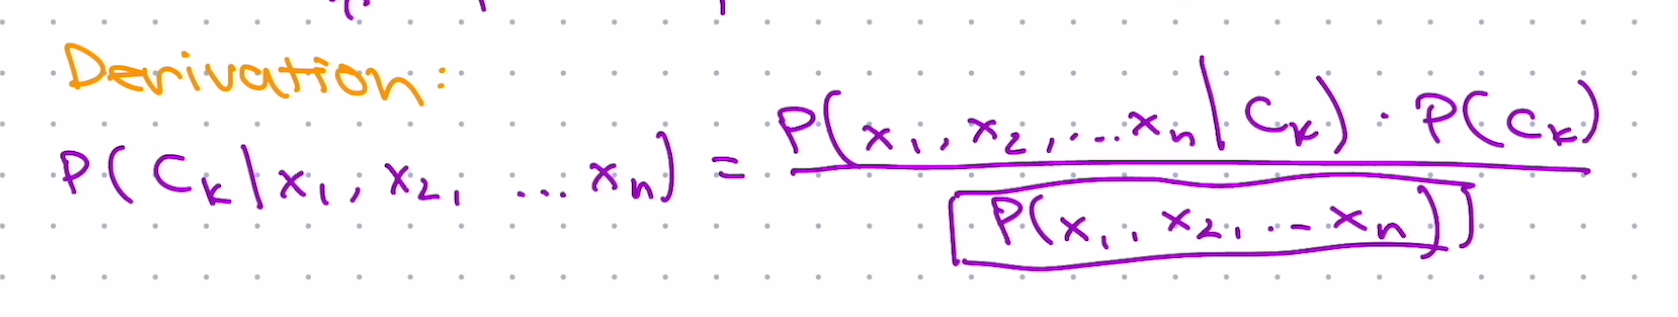 Derivation:
P(C_k | x_1, x_2, ... x_n) = \frac{P(x_1, x_2, ... x_n | C_k) · P(C_k)}{P(x_1, x_2, ... x_n)}